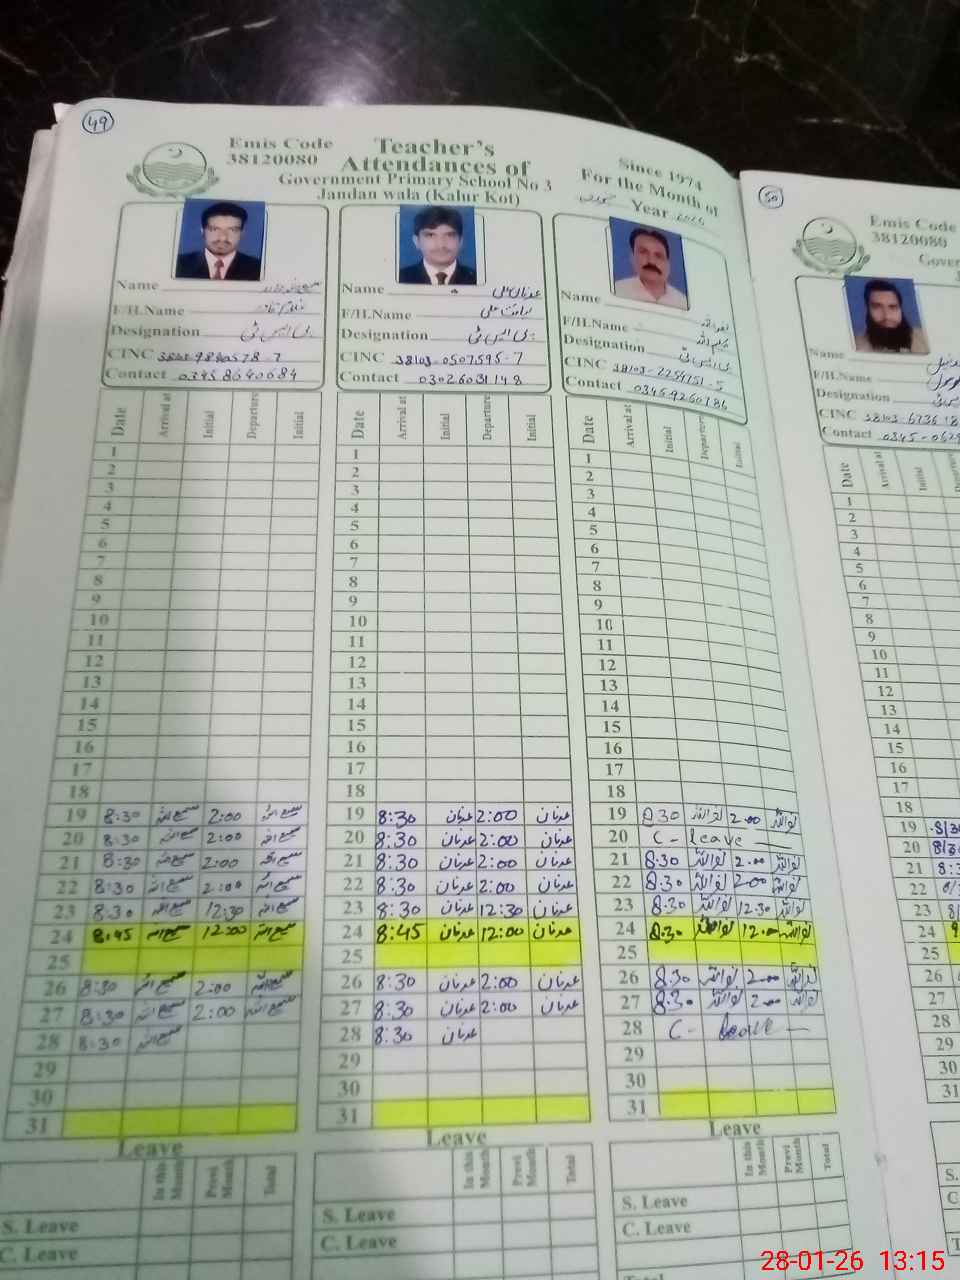 49
Emis Code
38120080
Teacher's
Attendances of
Government Primary School No 3
Jandan wala (Kalur Kot)
Since 1974
For the Month of
Year 2026
Name
F/H.Name
Designation پی ایس ٹی
CINC 38103-9880578-7
Contact 03458640684
Name عدنان علی
F/H.Name لیاقت علی
Designation پی ایس ٹی
CINC 38103-0507595-7
Contact 03026031148
Name
F/H.Name
Designation پی ایس ٹی
CINC 38103-2254751-5
Contact 03469260786
Date Arrival at Initial Departure Initial
1
2
3
4
5
6
7
8
9
10
11
12
13
14
15
16
17
18
19 8:30 سمیع اللہ 2:00 سمیع اللہ
20 8:30 سمیع اللہ 2:00 سمیع اللہ
21 8:30 سمیع اللہ 2:00 سمیع اللہ
22 8:30 سمیع اللہ 2:00 سمیع اللہ
23 8:30 سمیع اللہ 12:30 سمیع اللہ
24 8:45 سمیع اللہ 12:00 سمیع اللہ
25
26 8:30 سمیع اللہ 2:00 سمیع اللہ
27 8:30 سمیع اللہ 2:00 سمیع اللہ
28 8:30 سمیع اللہ
29
30
31
Leave
In this Month Previ Month Total
S. Leave
C. Leave
Date Arrival at Initial Departure Initial
1
2
3
4
5
6
7
8
9
10
11
12
13
14
15
16
17
18
19 8:30 عدنان 2:00 عدنان
20 8:30 عدنان 2:00 عدنان
21 8:30 عدنان 2:00 عدنان
22 8:30 عدنان 2:00 عدنان
23 8:30 عدنان 12:30 عدنان
24 8:45 عدنان 12:00 عدنان
25
26 8:30 عدنان 2:00 عدنان
27 8:30 عدنان 2:00 عدنان
28 8:30 عدنان
29
30
31
Leave
In this Month Previ Month Total
S. Leave
C. Leave
Date Arrival at Initial Departure Initial
1
2
3
4
5
6
7
8
9
10
11
12
13
14
15
16
17
18
19 8:30 2:00
20 C - leave
21 8:30 2:00
22 8:30 2:00
23 8:30 12:30
24 8:30 12:00
25
26 8:30 2:00
27 8:30 2:00
28 C - leave
29
30
31
Leave
In this Month Previ Month Total
S. Leave
C. Leave
50
Emis Code
38120080
Name
F/H.Name
Designation
CINC 38103-6736
Contact 0345-062
Date Arrival at Initial
1
2
3
4
5
6
7
8
9
10
11
12
13
14
15
16
17
18
19
20
21
22
23
24
25
26
27
28
29
30
31
28-01-26 13:15